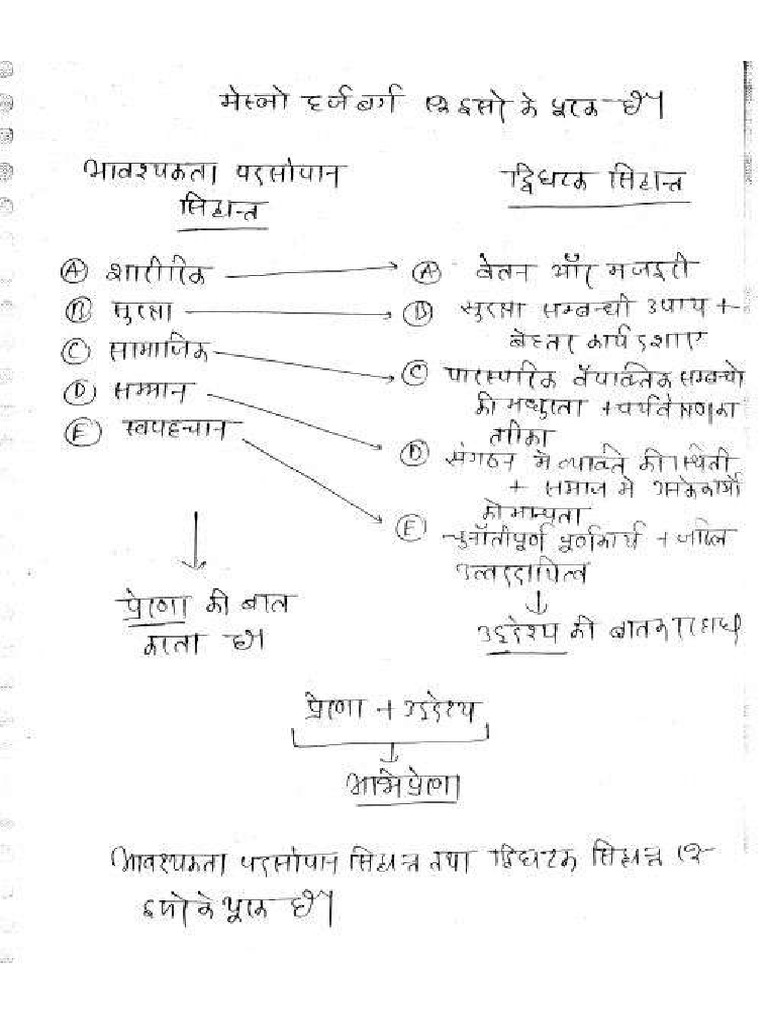 मेस्लो हर्जबर्ग एक दूसरे के पूरक है।
आवश्यकता पदसोपान
सिद्धान्त
द्विघटक सिद्धान्त
(A) शारीरिक
(B) सुरक्षा
(C) सामाजिक
(D) सम्मान
(E) स्वपहचान
प्रेरणा की बात
करता है।
(A) वेतन और मजदूरी
(B) सुरक्षा सम्बन्धी उपाय +
बेहतर कार्य दशाए
(C) पारस्परिक वैयक्तिक सम्बन्धो
की मधुरता + पर्यवेक्षण का
तरीका
(D) संगठन मे व्यक्ति की स्थिती
+ समाज मे उसके कार्यो
को मान्यता
(E) चुनौतीपूर्ण पूर्ण कार्य + जटिल
उत्तरदायित्व
उद्देश्य की बात कर रहा है
प्रेरणा + उद्देश्य
अभिप्रेरणा
आवश्यकता पदसोपान सिद्धान्त तथा द्विघटक सिद्धान्त एक
दूसरे के पूरक है।